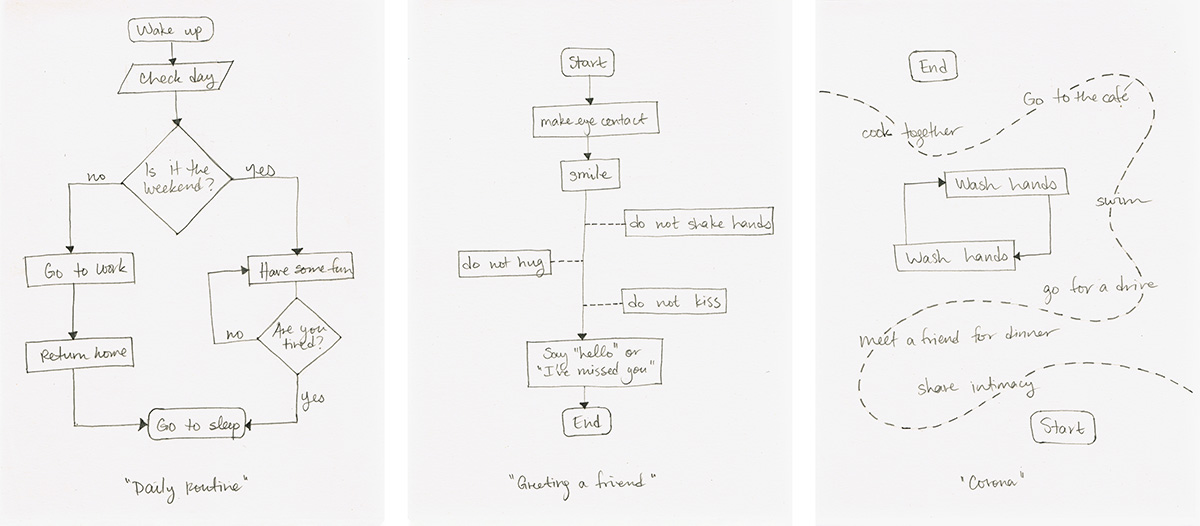 Wake up
Check day
Is it the
weekend?
no
yes
Go to work
Have some fun
no
Are you
tired?
Return home
yes
Go to sleep
"Daily Routine"
Start
make eye contact
smile
do not shake hands
do not hug
do not kiss
Say "hello" or
"I've missed you"
End
"Greeting a friend"
End
Go to the café
cook together
Wash hands
swim
Wash hands
go for a drive
meet a friend for dinner
share intimacy
Start
"Corona"